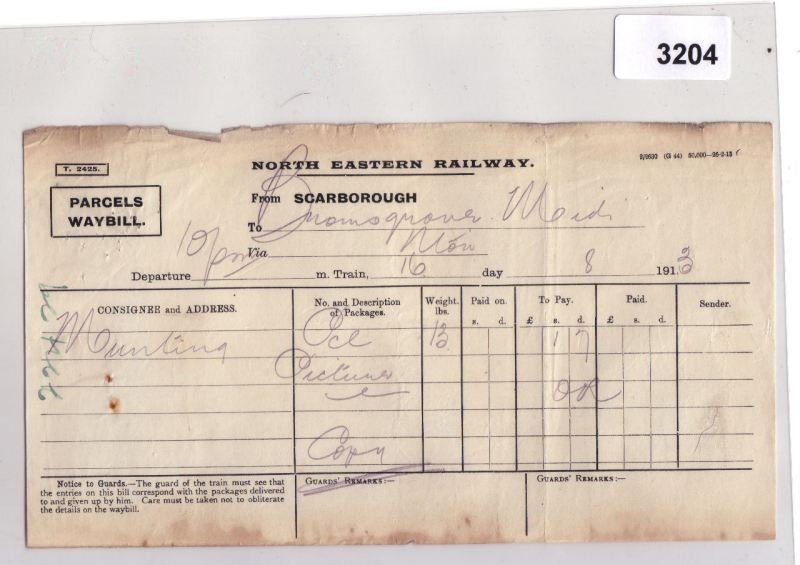 3204
T. 2425.
NORTH EASTERN RAILWAY.
PARCELS
WAYBILL.
From SCARBOROUGH
To Bromsgrove Midi
Via Mon
Departure 10 pm m. Train, 16 day 8 1913
CONSIGNEE and ADDRESS. No. and Description of Packages. Weight. lbs. Paid on. s. d. To Pay. £ s. d. Paid. £ s. d. Sender.
Munting Pcl 13 1 7
Picture OR
Copy
Notice to Guards.—The guard of the train must see that
the entries on this bill correspond with the packages delivered
to and given up by him. Care must be taken not to obliterate
the details on the waybill.
GUARDS' REMARKS:—
GUARDS' REMARKS:—